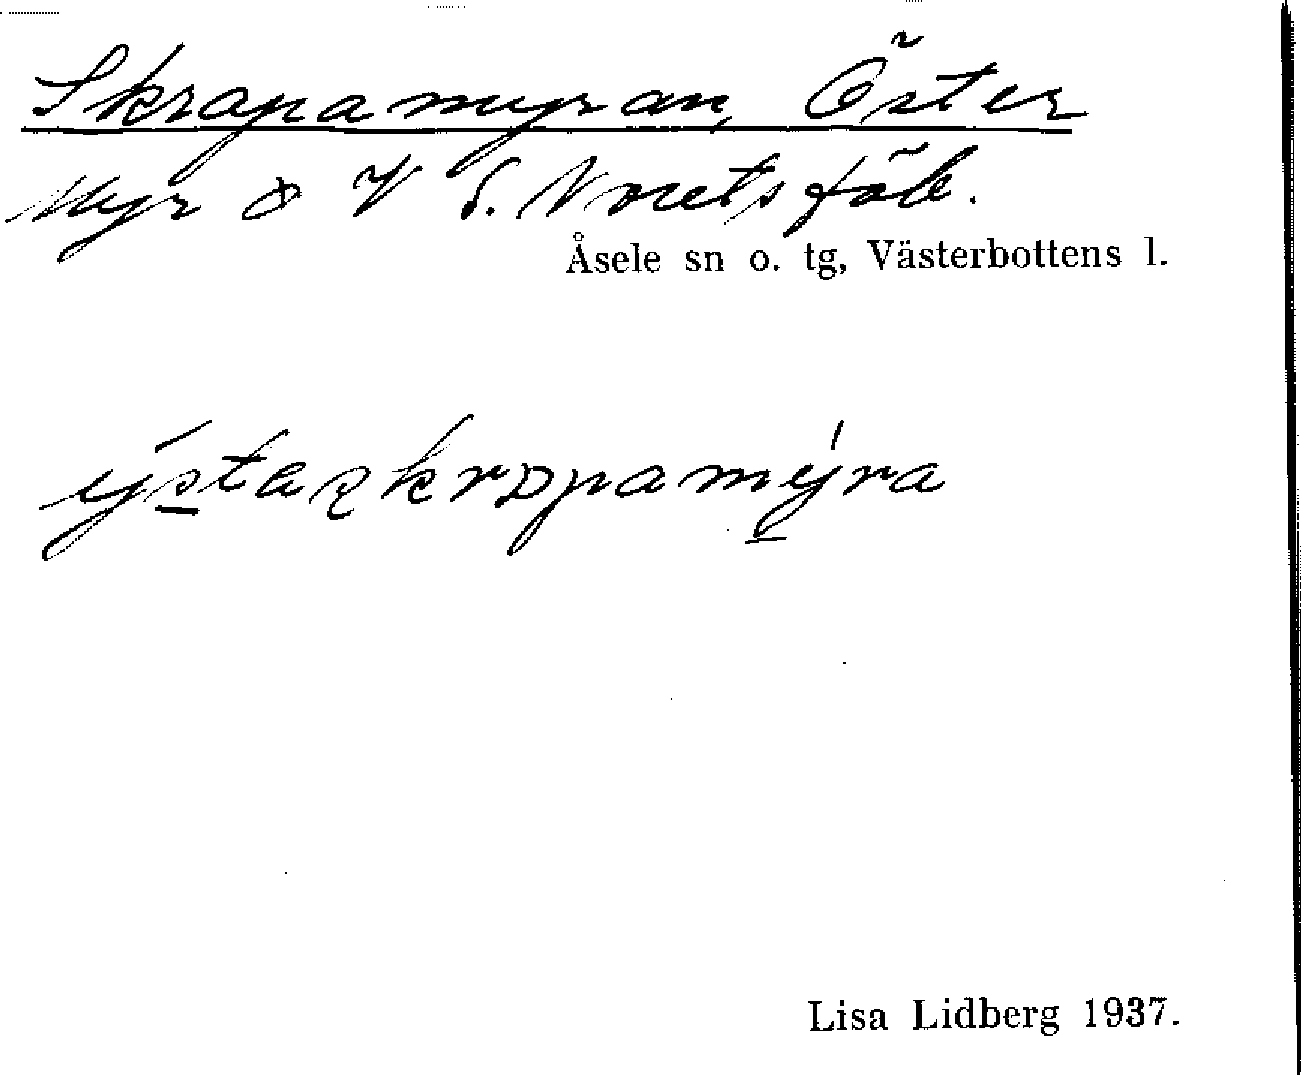 Skrapamyran, Öster
Myr o V S. Noretsfäb.
Åsele sn o. tg, Västerbottens l.
ýstaʂkrɒpamýra
Lisa Lidberg 1937.